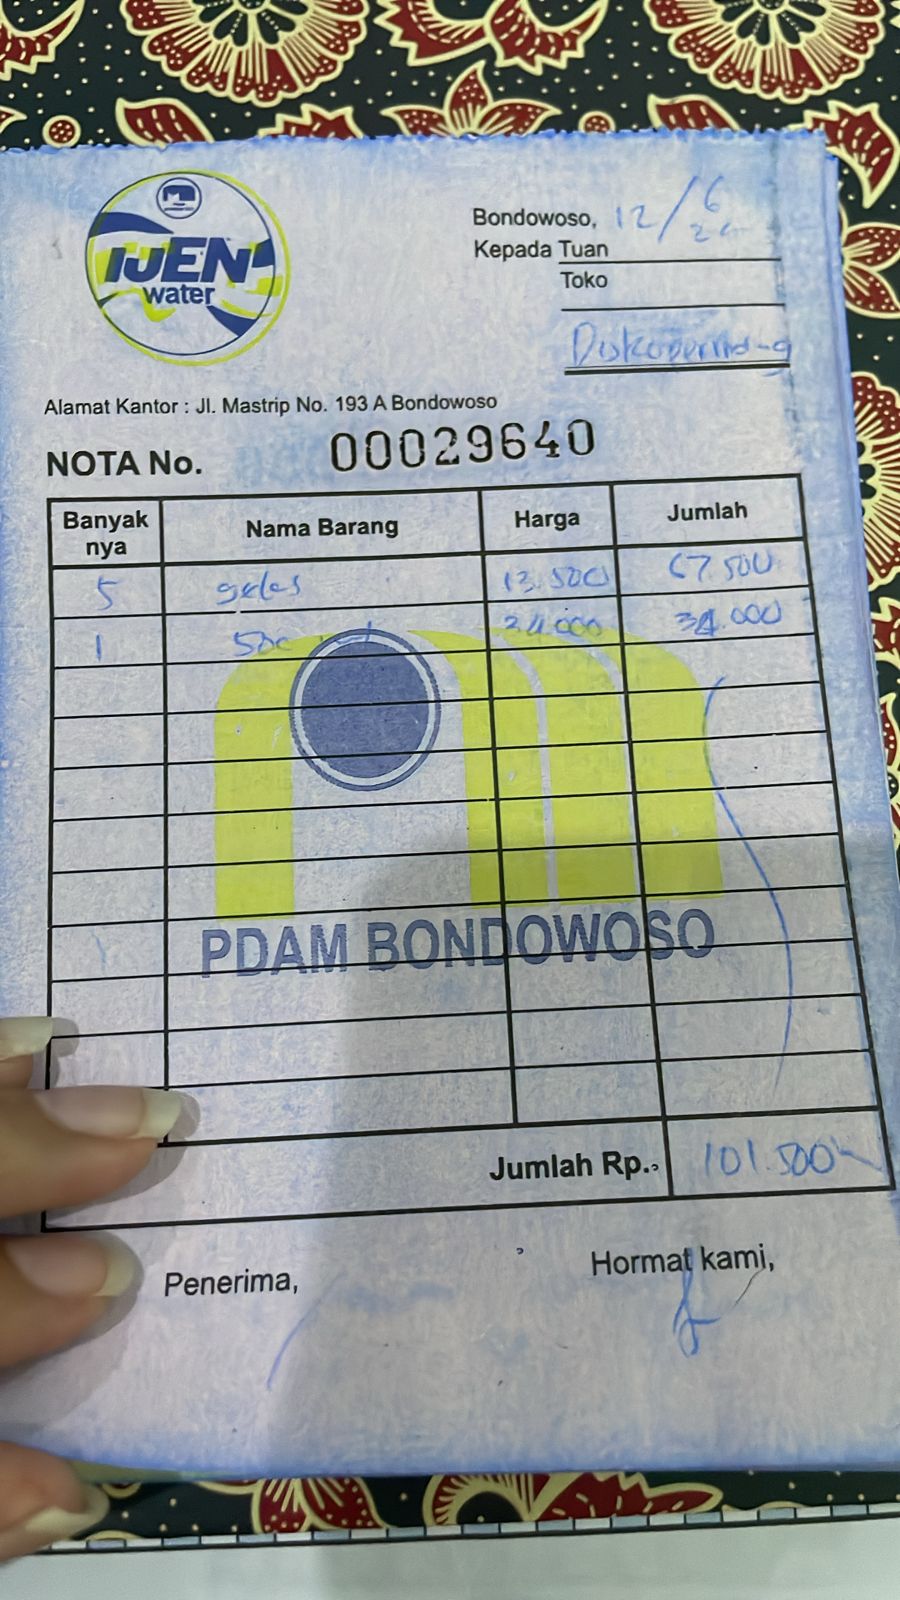 IJEN
water
Bondowoso, 12/6
24
Kepada Tuan
Toko
Diskoperindag
Alamat Kantor : Jl. Mastrip No. 193 A Bondowoso
NOTA No. 00029640
Banyak nya Nama Barang Harga Jumlah
5 gelas 13.500 67.500
1 500 ml 34.000 34.000
PDAM BONDOWOSO
Jumlah Rp. 101.500
Penerima, Hormat kami,